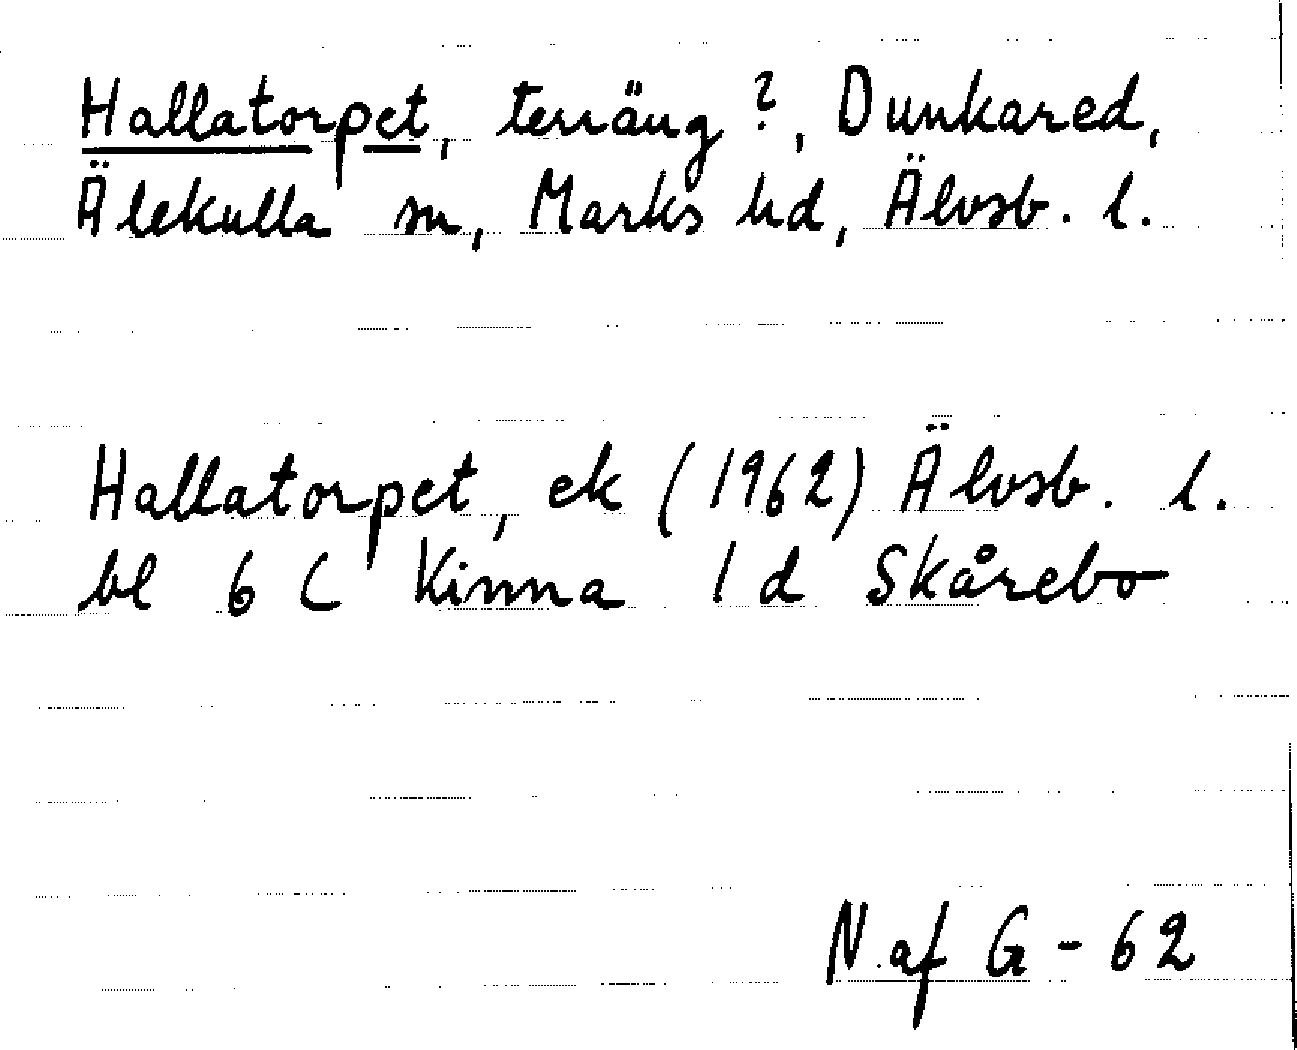 Hallatorpet, terräng?, Dunkared,
Älekulla sn, Marks hd, Älvsb. l.
Hallatorpet, ek (1962) Älvsb. l.
bl 6 C Kinna 1 d Skårebo
N. af G - 62